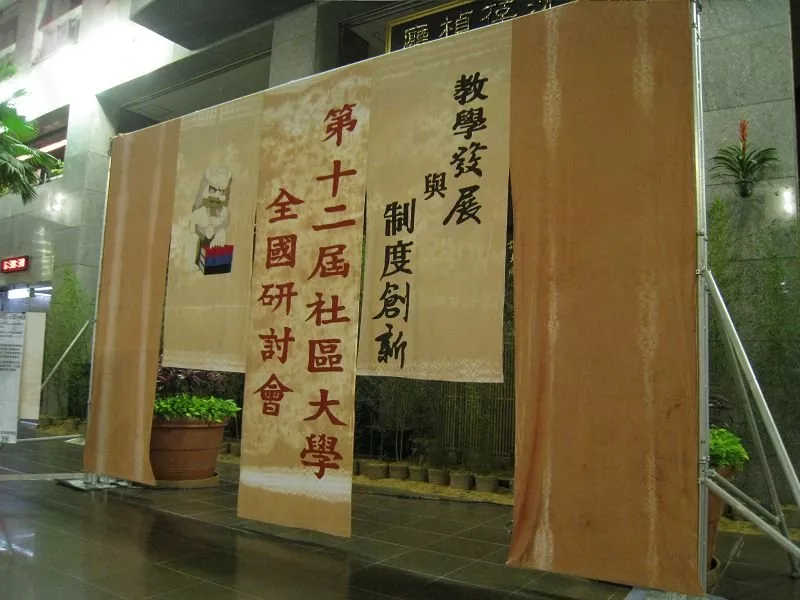 教學發展
與
制度創新
第十二屆社區大學
全國研討會